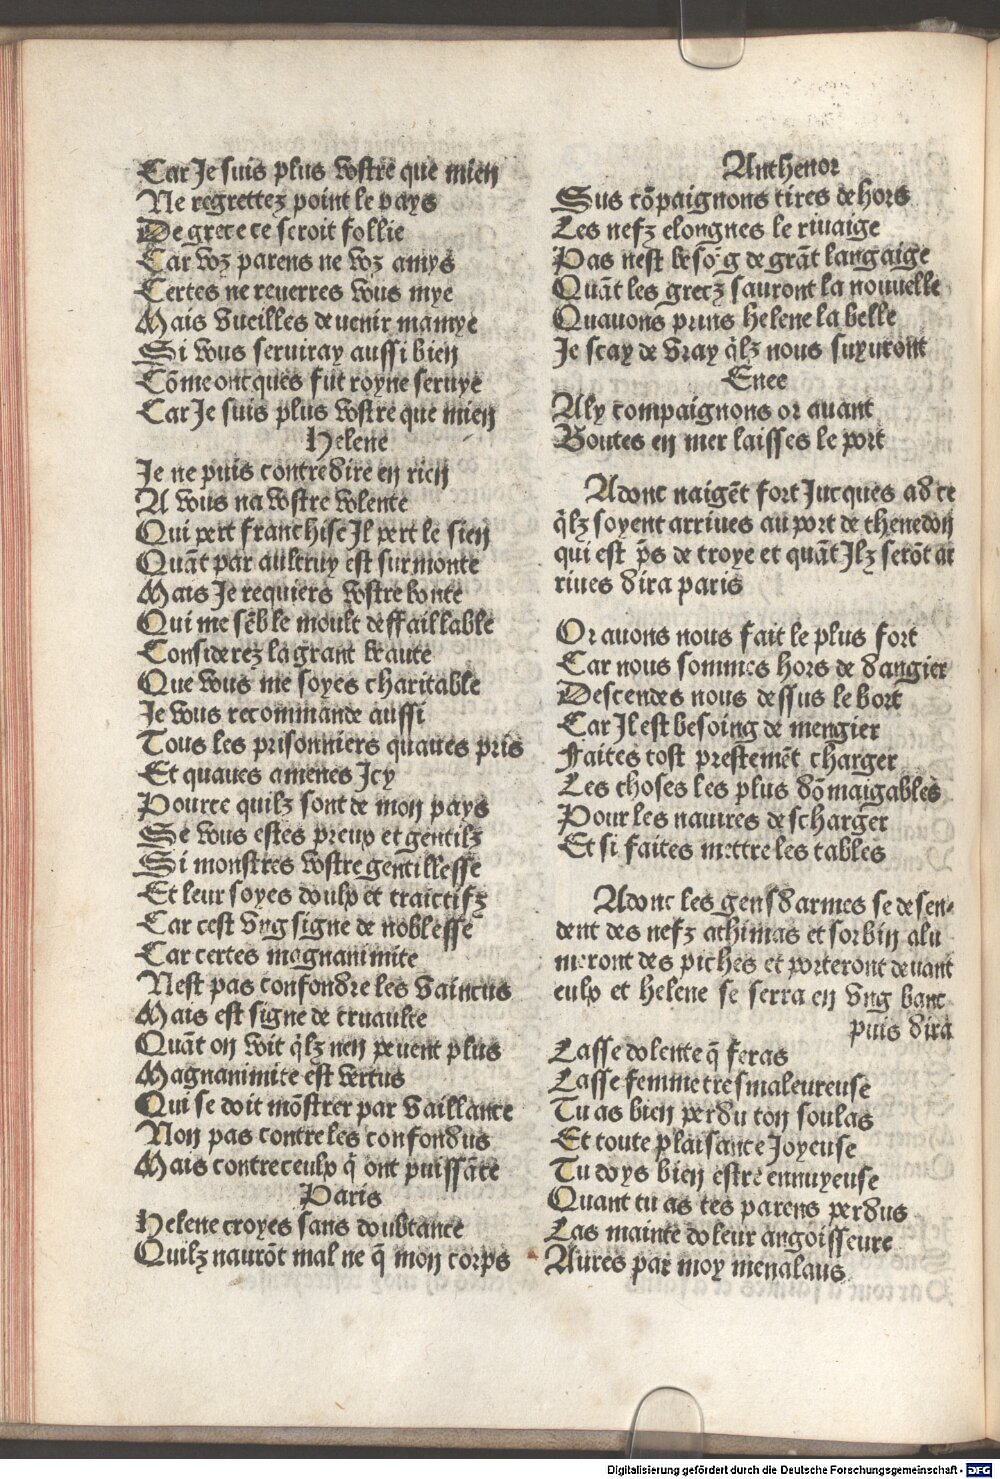 Car Je suis plus vostre que mien
Ne regrettez point le pays
De grece ce seroit follie
Car voz parens ne voz amys
Certes ne reuerres vous mye
Mais vueilles deuenir mamye
Si vous seruiray aussi bien
Cõme oncques fut royne seruye
Car Je suis plus vostre que mien
Helene
Je ne puis contredire en rien
A vous na vostre volente
Qui pert franchise Il pert le sien
Quãt par aultruy est surmonte
Mais Je requiers vostre bonte
Qui me sẽble moult deffaillable
Considerez la grant beaute
Que vous me soyes charitable
Je vous recommande aussi
Tous les prisonniers quaues pris
Et quaues amenes Icy
Pource quilz sont de mon pays
Se vous estes preup et gentilz
Si monstres vostre gentillesse
Et leur soyes doulp et traictifz
Car cest vng signe de noblesse
Car certes magnanimite
Nest pas confondre les vaincus
Mais est signe de cruaulte
Quãt on voit q̃lz nen peuent plus
Magnanimite est vertus
Qui se doit mõstrer par vaillance
Non pas contre les confondus
Mais contre ceulp q̃ ont puissãce
Paris
Helene croyes sans doubtance
Quilz naurõt mal ne q̃ mon corps
Anthenor
Sus cõpaignons tires dehors
Les nefz elongnes le riuaige
Pas nest besõig de grãt langaige
Quãt les grecz sauront la nouuelle
Quauons prins helene la belle
Je scay de vray q̃lz nous suyuront
Enee
Aly compaignons or auant
Boutes en mer laisses le port
Adonc naigẽt fort Jucques ad ce
q̃lz soyent arriues au port de thenedon
qui est p̃s de troye et quãt Ilz serõt ar
riues dira paris
Or auons nous fait le plus fort
Car nous sommes hors de dangier
Descendes nous dessus le bort
Car Il est besoing de mengier
Faites tost prestemẽt charger
Les choses les plus dõmaigables
Pour les nauires descharger
Et si faites mettre les tables
Adonc les gensdarmes se desen-
dent des nefz athimas et sorbin alu
meront des piches et porteront deuant
eulp et helene se serra en vng banc
puis dira
Lasse dolente q̃ feras
Lasse femme tresmaleureuse
Tu as bien perdu ton soulas
Et toute plaisance Joyeuse
Tu doys bien estre ennuyeuse
Quant tu as tes parens perdus
Las mainte doleur angoisseure
Aures par moy menalaus
Digitalisierung gefördert durch die Deutsche Forschungsgemeinschaft - DFG